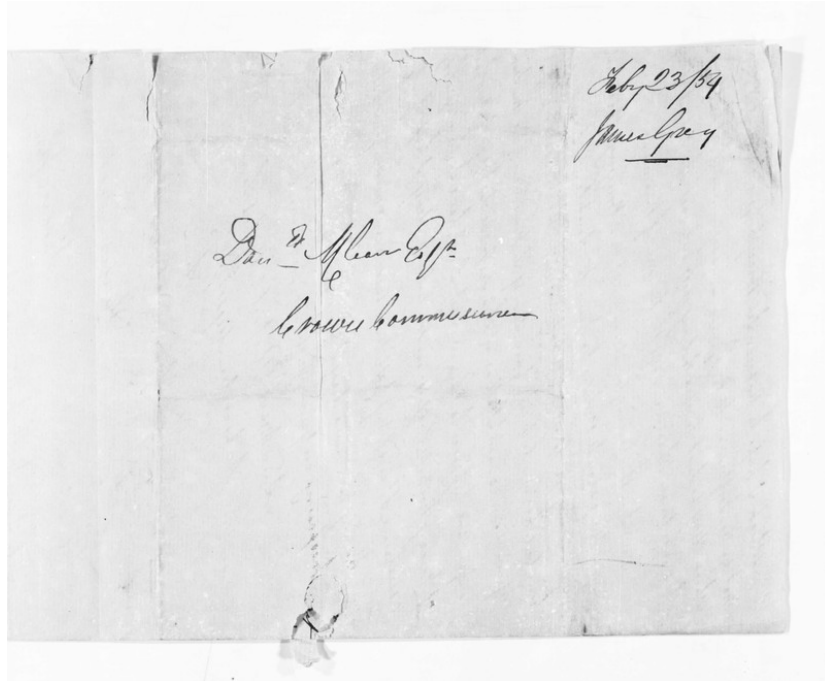 Feby 23/54
James Grey
Dond. McLean Esqr.
Crown Commissioner